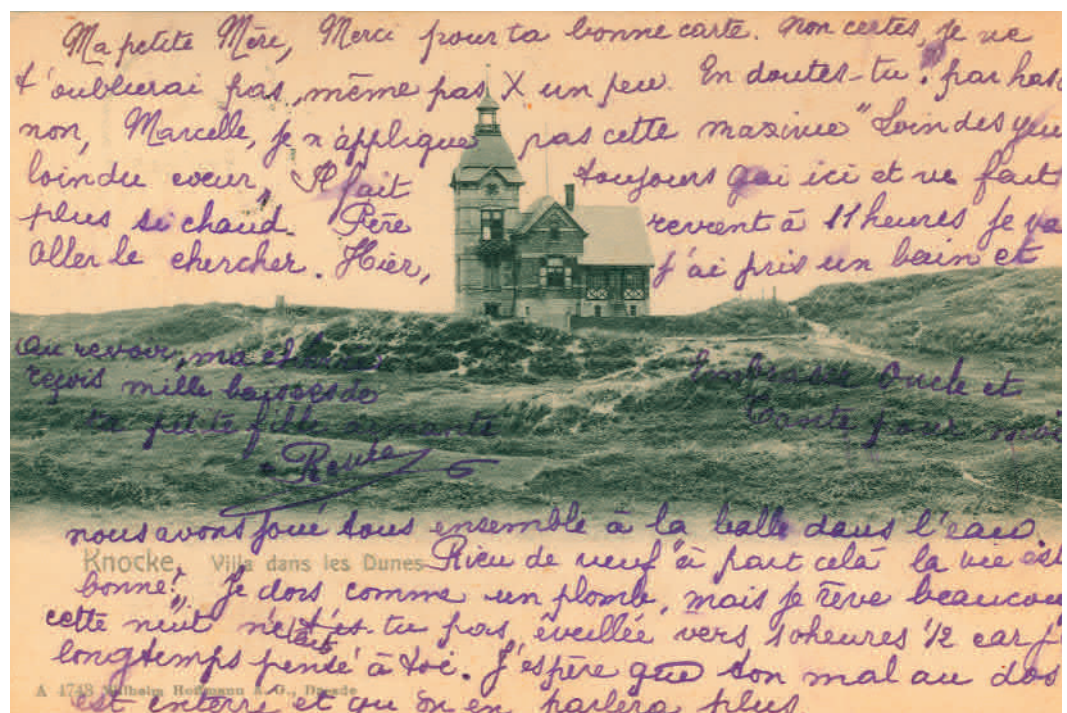 Ma petite Mère, Merci pour ta bonne carte. Non certes, je ne
t'oublierai pas, même pas X un peu. En doutes-tu, par has
non, Marcelle, je n'applique pas cette maxime "Loin des yeu
loin du coeur, Il fait toujours gai ici et ne fait
plus si chaud. Père revient à 11 heures je va
Aller le chercher. Hier, j'ai pris un bain et
Au revoir, ma
reçois mille baisers de
ta petite fille aimante
Renée
Embrasse Oncle et
Tante pour moi
nous avons joué tous ensemble à la balle dans l'eau.
Knocke, Villa dans les Dunes
Rien de neuf à part celà la vie est
bonne! Je dors comme un plomb, mais je rêve beaucou
cette nuit n'étais-tu pas éveillée vers 10 heures 1/2 car j'
longtemps pensé à toi. J'espère que ton mal au dos
A 1748 Wilhelm Hoffmann A. G., Dresde
est enterré et qu'on en parlera plus